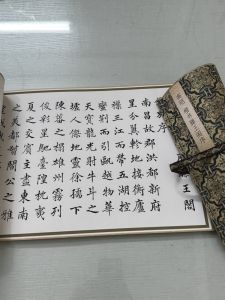 王閣
別序
南昌故郡洪都新府
星分翼軫地接衡廬
襟三江而帶五湖控
蠻荊而引甌越物華
天寶龍光射牛斗之
墟人傑地靈徐孺下
陳蕃之榻雄州霧列
俊彩星馳臺隍枕夷
夏之交賓主盡東南
之美都督閻公之雅